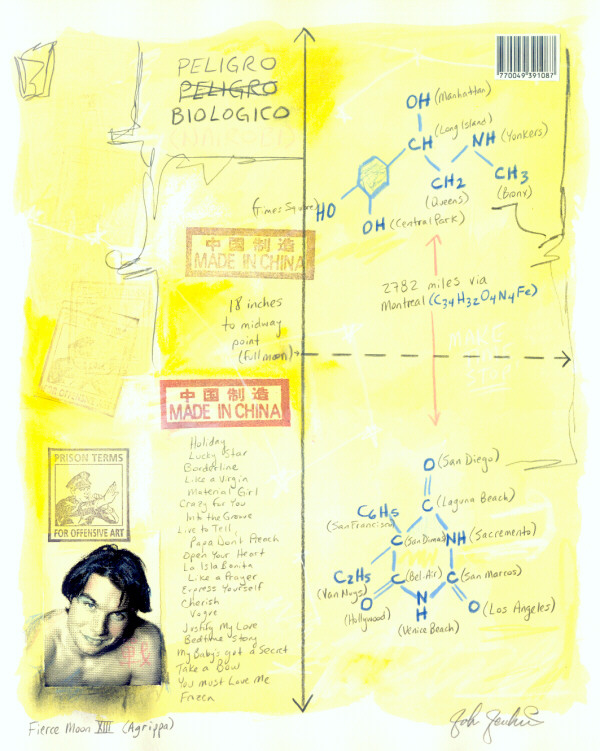 PELIGRO
PELIGRO
BIOLOGICO
770049"391087"
OH (Manhattan)
CH (Long Island)
NH (Yonkers)
CH2 (Queens)
CH3 (Bronx)
HO (Times Square)
OH (Central Park)
中国制造
MADE IN CHINA
2782 miles via
Montreal (C34H32O4N4Fe)
18 inches
to midway
point
(full moon)
MAKE
STOP
中国制造
MADE IN CHINA
PRISON TERMS
FOR OFFENSIVE ART
Holiday
Lucky Star
Borderline
Like a Virgin
Material Girl
Crazy for You
Into the Groove
Live to Tell
Papa Don't Preach
Open Your Heart
La Isla Bonita
Like a Prayer
Express Yourself
Cherish
Vogue
Justify My Love
Bedtime Story
My Baby's got a Secret
Take a Bow
You must Love Me
Frozen
O (San Diego)
C (Laguna Beach)
C6H5 (San Francisco)
C (San Dimas)
NH (Sacremento)
C2H5 (Van Nuys)
C (Bel-Air)
C (San Marcos)
O (Hollywood)
N
H (Venice Beach)
O (Los Angeles)
Fierce Moon XIII (Agrippa)